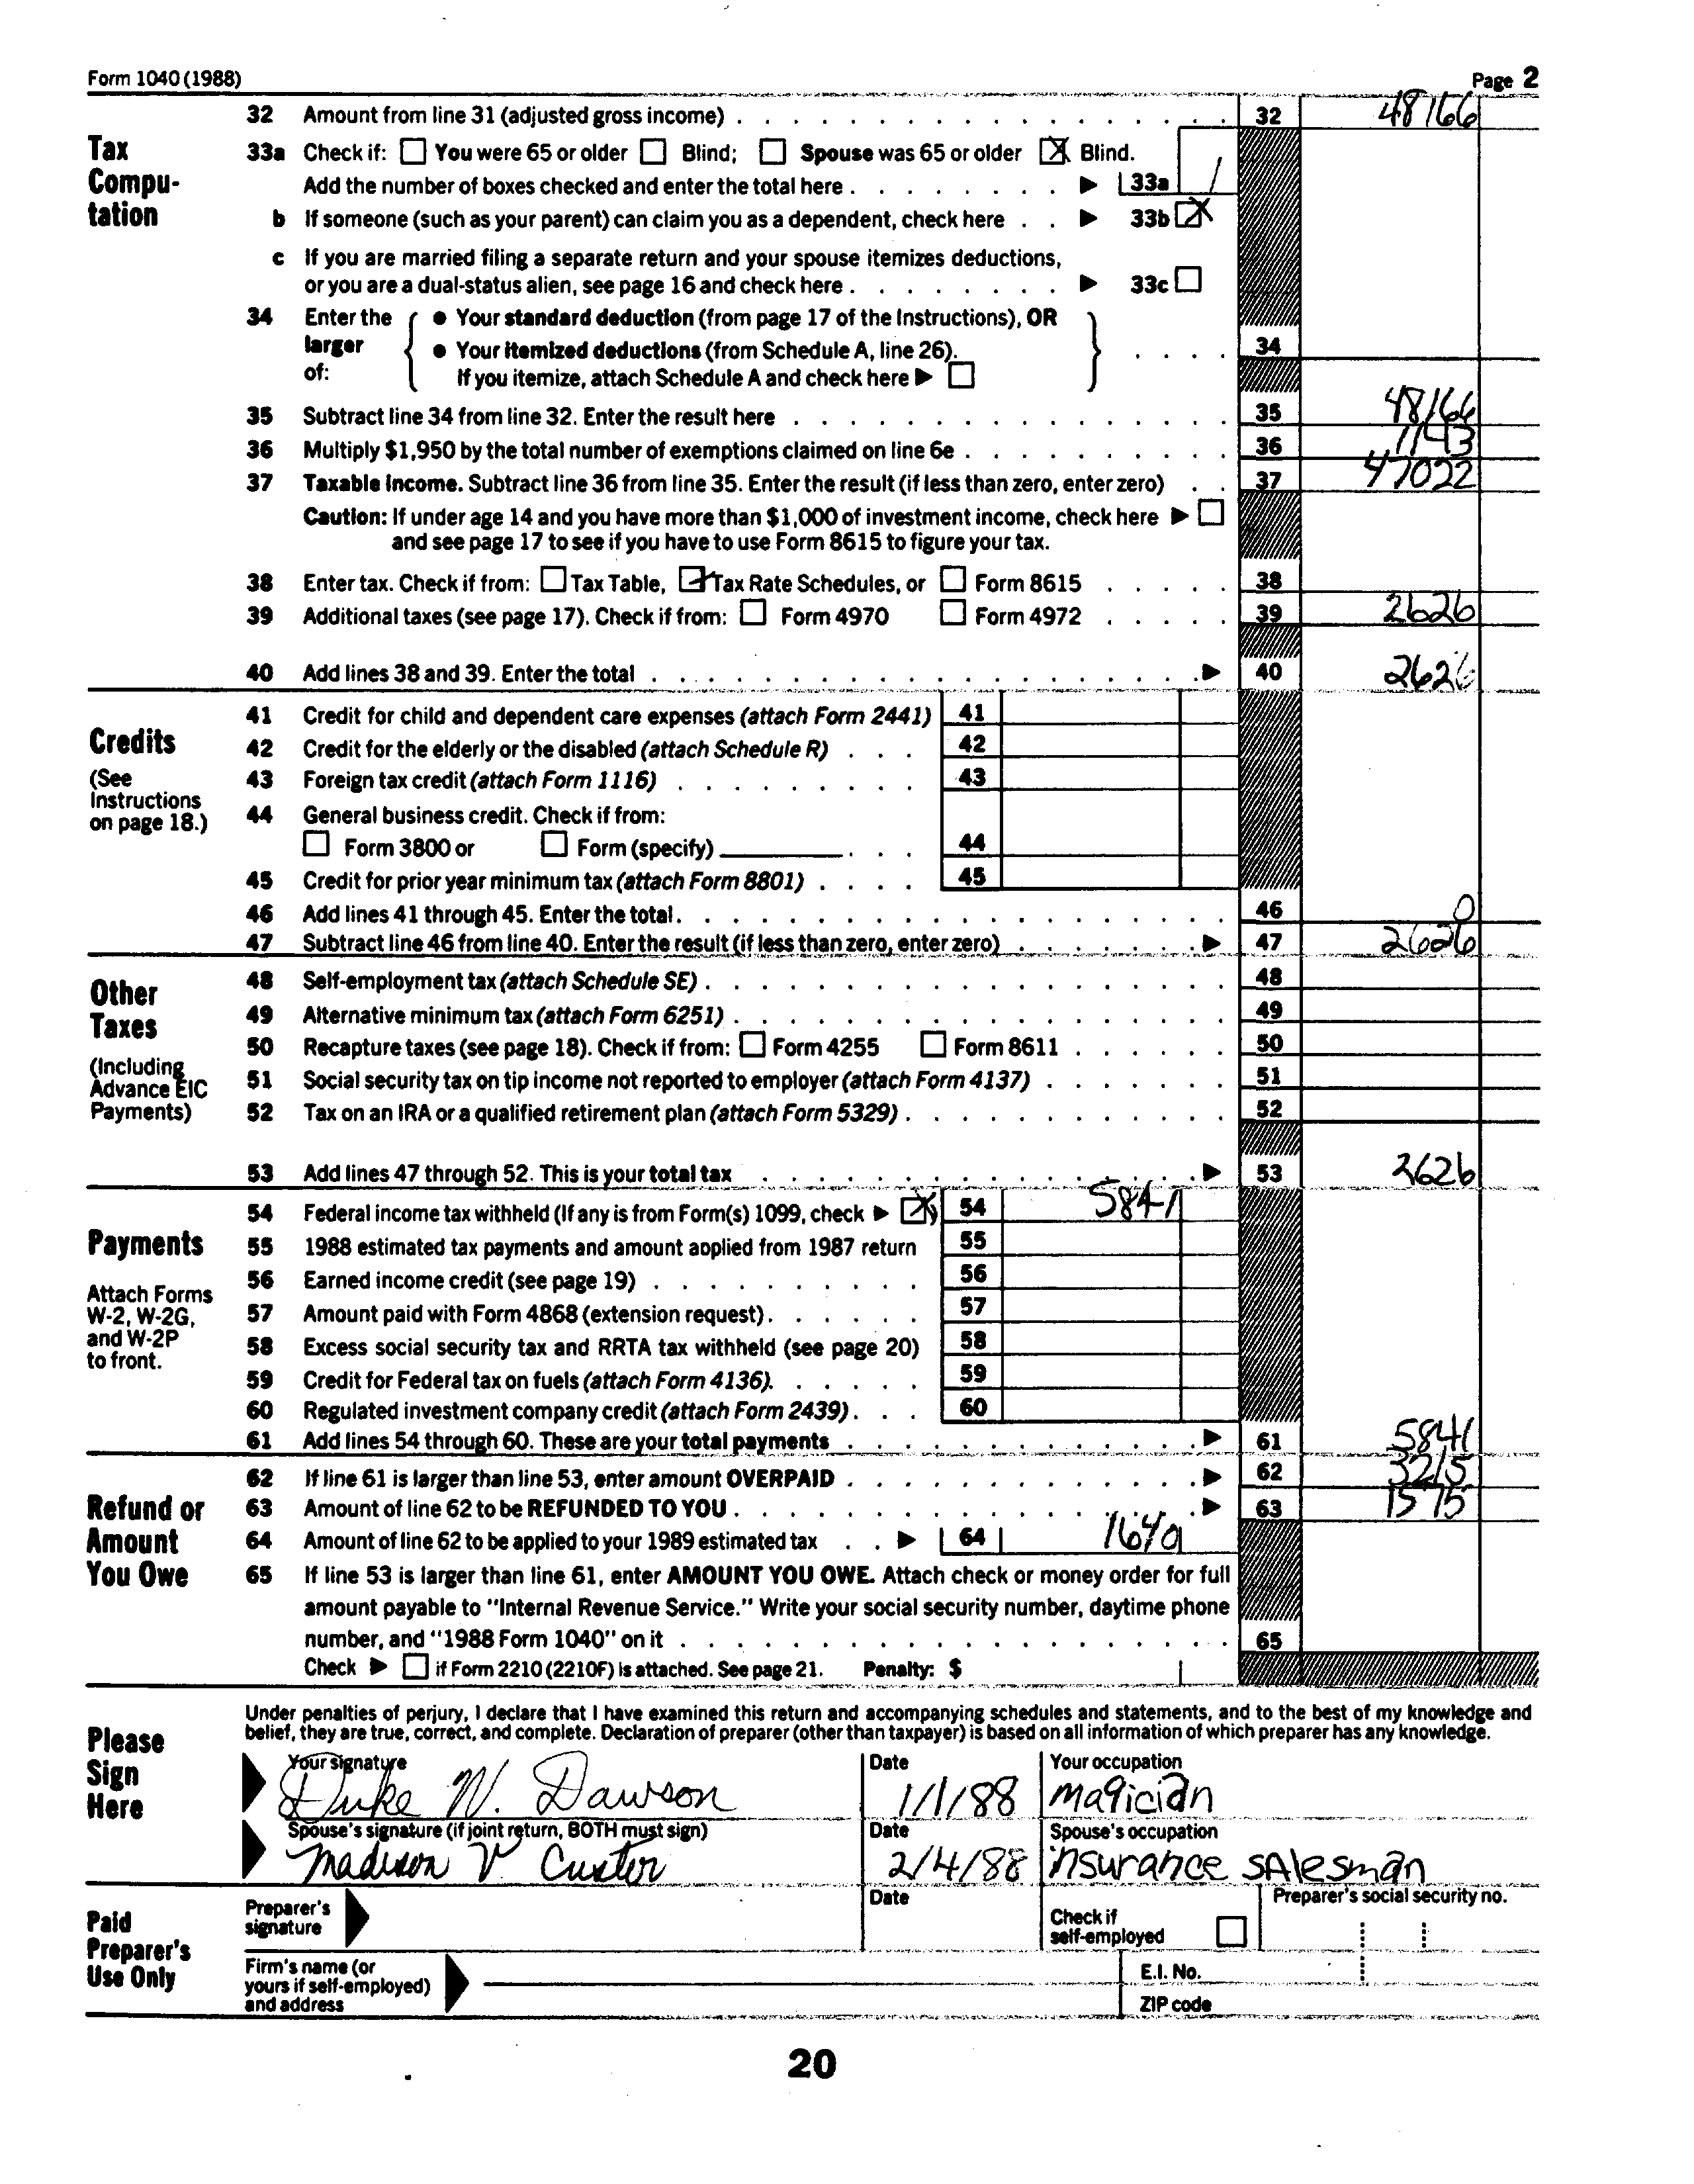 Form 1040 (1988) Page 2
32 Amount from line 31 (adjusted gross income) 32 48166
Tax Computation
33a Check if: You were 65 or older Blind; Spouse was 65 or older X Blind.
Add the number of boxes checked and enter the total here 33a 1
b If someone (such as your parent) can claim you as a dependent, check here 33b X
c If you are married filing a separate return and your spouse itemizes deductions,
or you are a dual-status alien, see page 16 and check here 33c
34 Enter the larger of:
• Your standard deduction (from page 17 of the Instructions), OR
• Your itemized deductions (from Schedule A, line 26). 34
If you itemize, attach Schedule A and check here
35 Subtract line 34 from line 32. Enter the result here 35 48166
36 Multiply $1,950 by the total number of exemptions claimed on line 6e 36 1143
37 Taxable income. Subtract line 36 from line 35. Enter the result (if less than zero, enter zero) 37 47022
Caution: If under age 14 and you have more than $1,000 of investment income, check here
and see page 17 to see if you have to use Form 8615 to figure your tax.
38 Enter tax. Check if from: Tax Table, Tax Rate Schedules, or Form 8615 38
39 Additional taxes (see page 17). Check if from: Form 4970 Form 4972 39 2626
40 Add lines 38 and 39. Enter the total 40 2626
Credits
(See Instructions on page 18.)
41 Credit for child and dependent care expenses (attach Form 2441) 41
42 Credit for the elderly or the disabled (attach Schedule R) 42
43 Foreign tax credit (attach Form 1116) 43
44 General business credit. Check if from:
Form 3800 or Form (specify) 44
45 Credit for prior year minimum tax (attach Form 8801) 45
46 Add lines 41 through 45. Enter the total 46 0
47 Subtract line 46 from line 40. Enter the result (if less than zero, enter zero) 47 2626
Other Taxes
(Including Advance EIC Payments)
48 Self-employment tax (attach Schedule SE) 48
49 Alternative minimum tax (attach Form 6251) 49
50 Recapture taxes (see page 18). Check if from: Form 4255 Form 8611 50
51 Social security tax on tip income not reported to employer (attach Form 4137) 51
52 Tax on an IRA or a qualified retirement plan (attach Form 5329) 52
53 Add lines 47 through 52. This is your total tax 53 2626
Payments
Attach Forms W-2, W-2G, and W-2P to front.
54 Federal income tax withheld (If any is from Form(s) 1099, check X) 54 5841
55 1988 estimated tax payments and amount applied from 1987 return 55
56 Earned income credit (see page 19) 56
57 Amount paid with Form 4868 (extension request) 57
58 Excess social security tax and RRTA tax withheld (see page 20) 58
59 Credit for Federal tax on fuels (attach Form 4136) 59
60 Regulated investment company credit (attach Form 2439) 60
61 Add lines 54 through 60. These are your total payments 61 5841
Refund or Amount You Owe
62 If line 61 is larger than line 53, enter amount OVERPAID 62 3215
63 Amount of line 62 to be REFUNDED TO YOU 63 1575
64 Amount of line 62 to be applied to your 1989 estimated tax 64 1640
65 If line 53 is larger than line 61, enter AMOUNT YOU OWE. Attach check or money order for full
amount payable to "Internal Revenue Service." Write your social security number, daytime phone
number, and "1988 Form 1040" on it 65
Check if Form 2210 (2210F) is attached. See page 21. Penalty: $
Please Sign Here
Under penalties of perjury, I declare that I have examined this return and accompanying schedules and statements, and to the best of my knowledge and
belief, they are true, correct, and complete. Declaration of preparer (other than taxpayer) is based on all information of which preparer has any knowledge.
Your signature Date Your occupation
Duke W. Dawson 1/1/88 magician
Spouse's signature (if joint return, BOTH must sign) Date Spouse's occupation
Madison V Custer 2/4/88 insurance salesman
Paid Preparer's Use Only
Preparer's signature Date Check if self-employed Preparer's social security no.
Firm's name (or yours if self-employed) and address E.I. No.
ZIP code
20